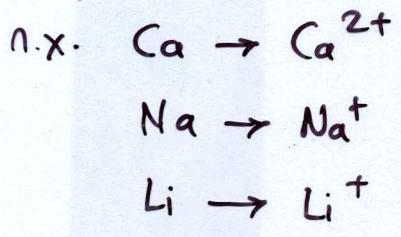 π.χ. Ca → Ca²⁺
Na → Na⁺
Li → Li⁺